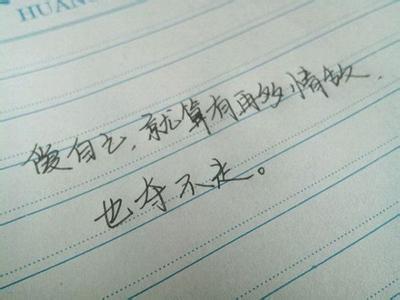 HUAN
爱自己，就算有再多情敌，
也夺不走。